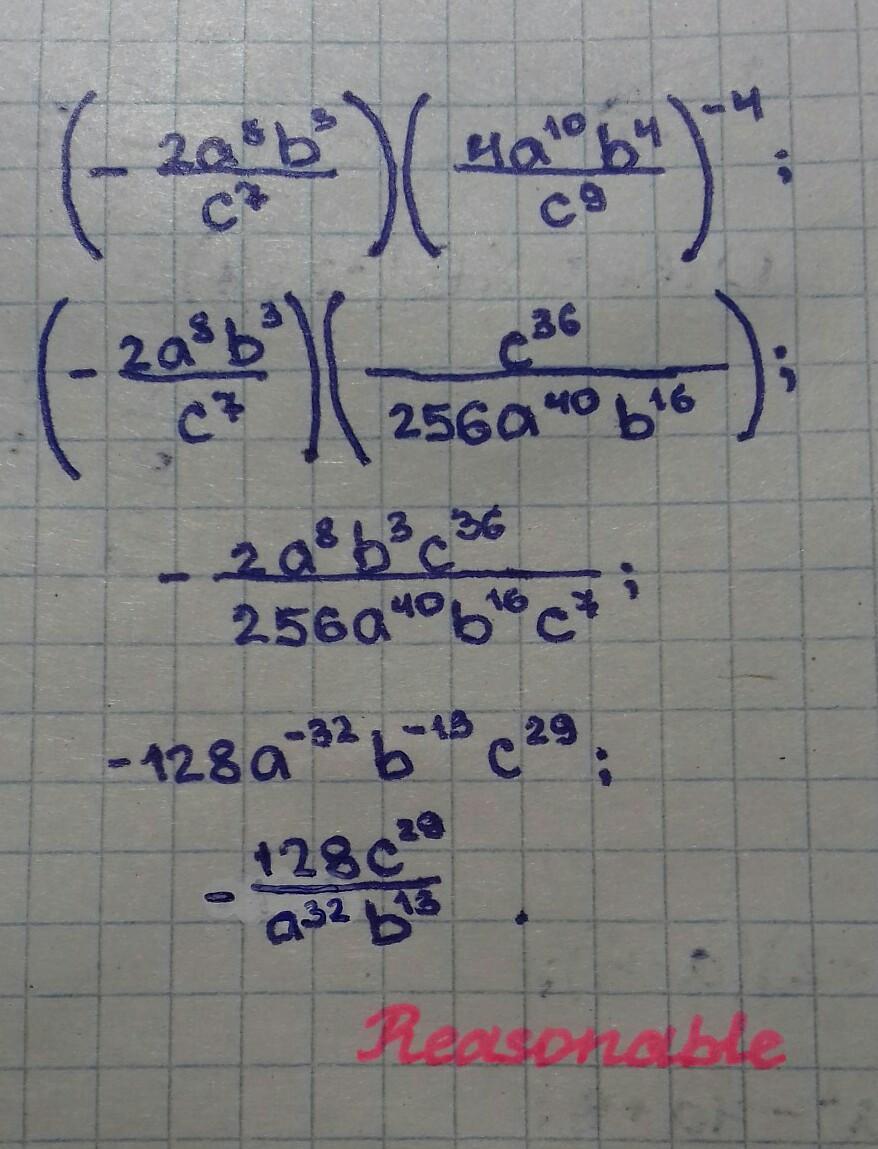 (- 2a⁸b³/c⁷)(4a¹⁰b⁴/c⁹)⁻⁴;
(- 2a⁸b³/c⁷)(c³⁶/256a⁴⁰b¹⁶);
- 2a⁸b³c³⁶/256a⁴⁰b¹⁶c⁷;
-128a⁻³²b⁻¹³c²⁹;
- 128c²⁹/a³²b¹³.
Reasonable